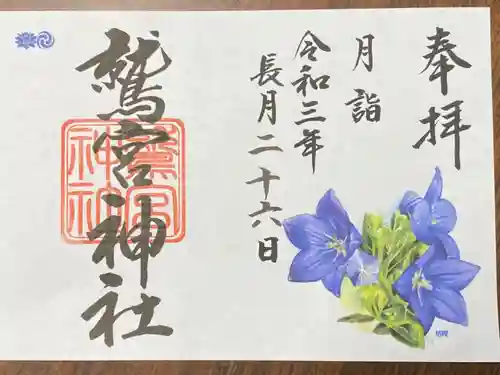 奉拝
月詣
令和三年
長月二十六日
鷲宮神社
鷲宮
神社